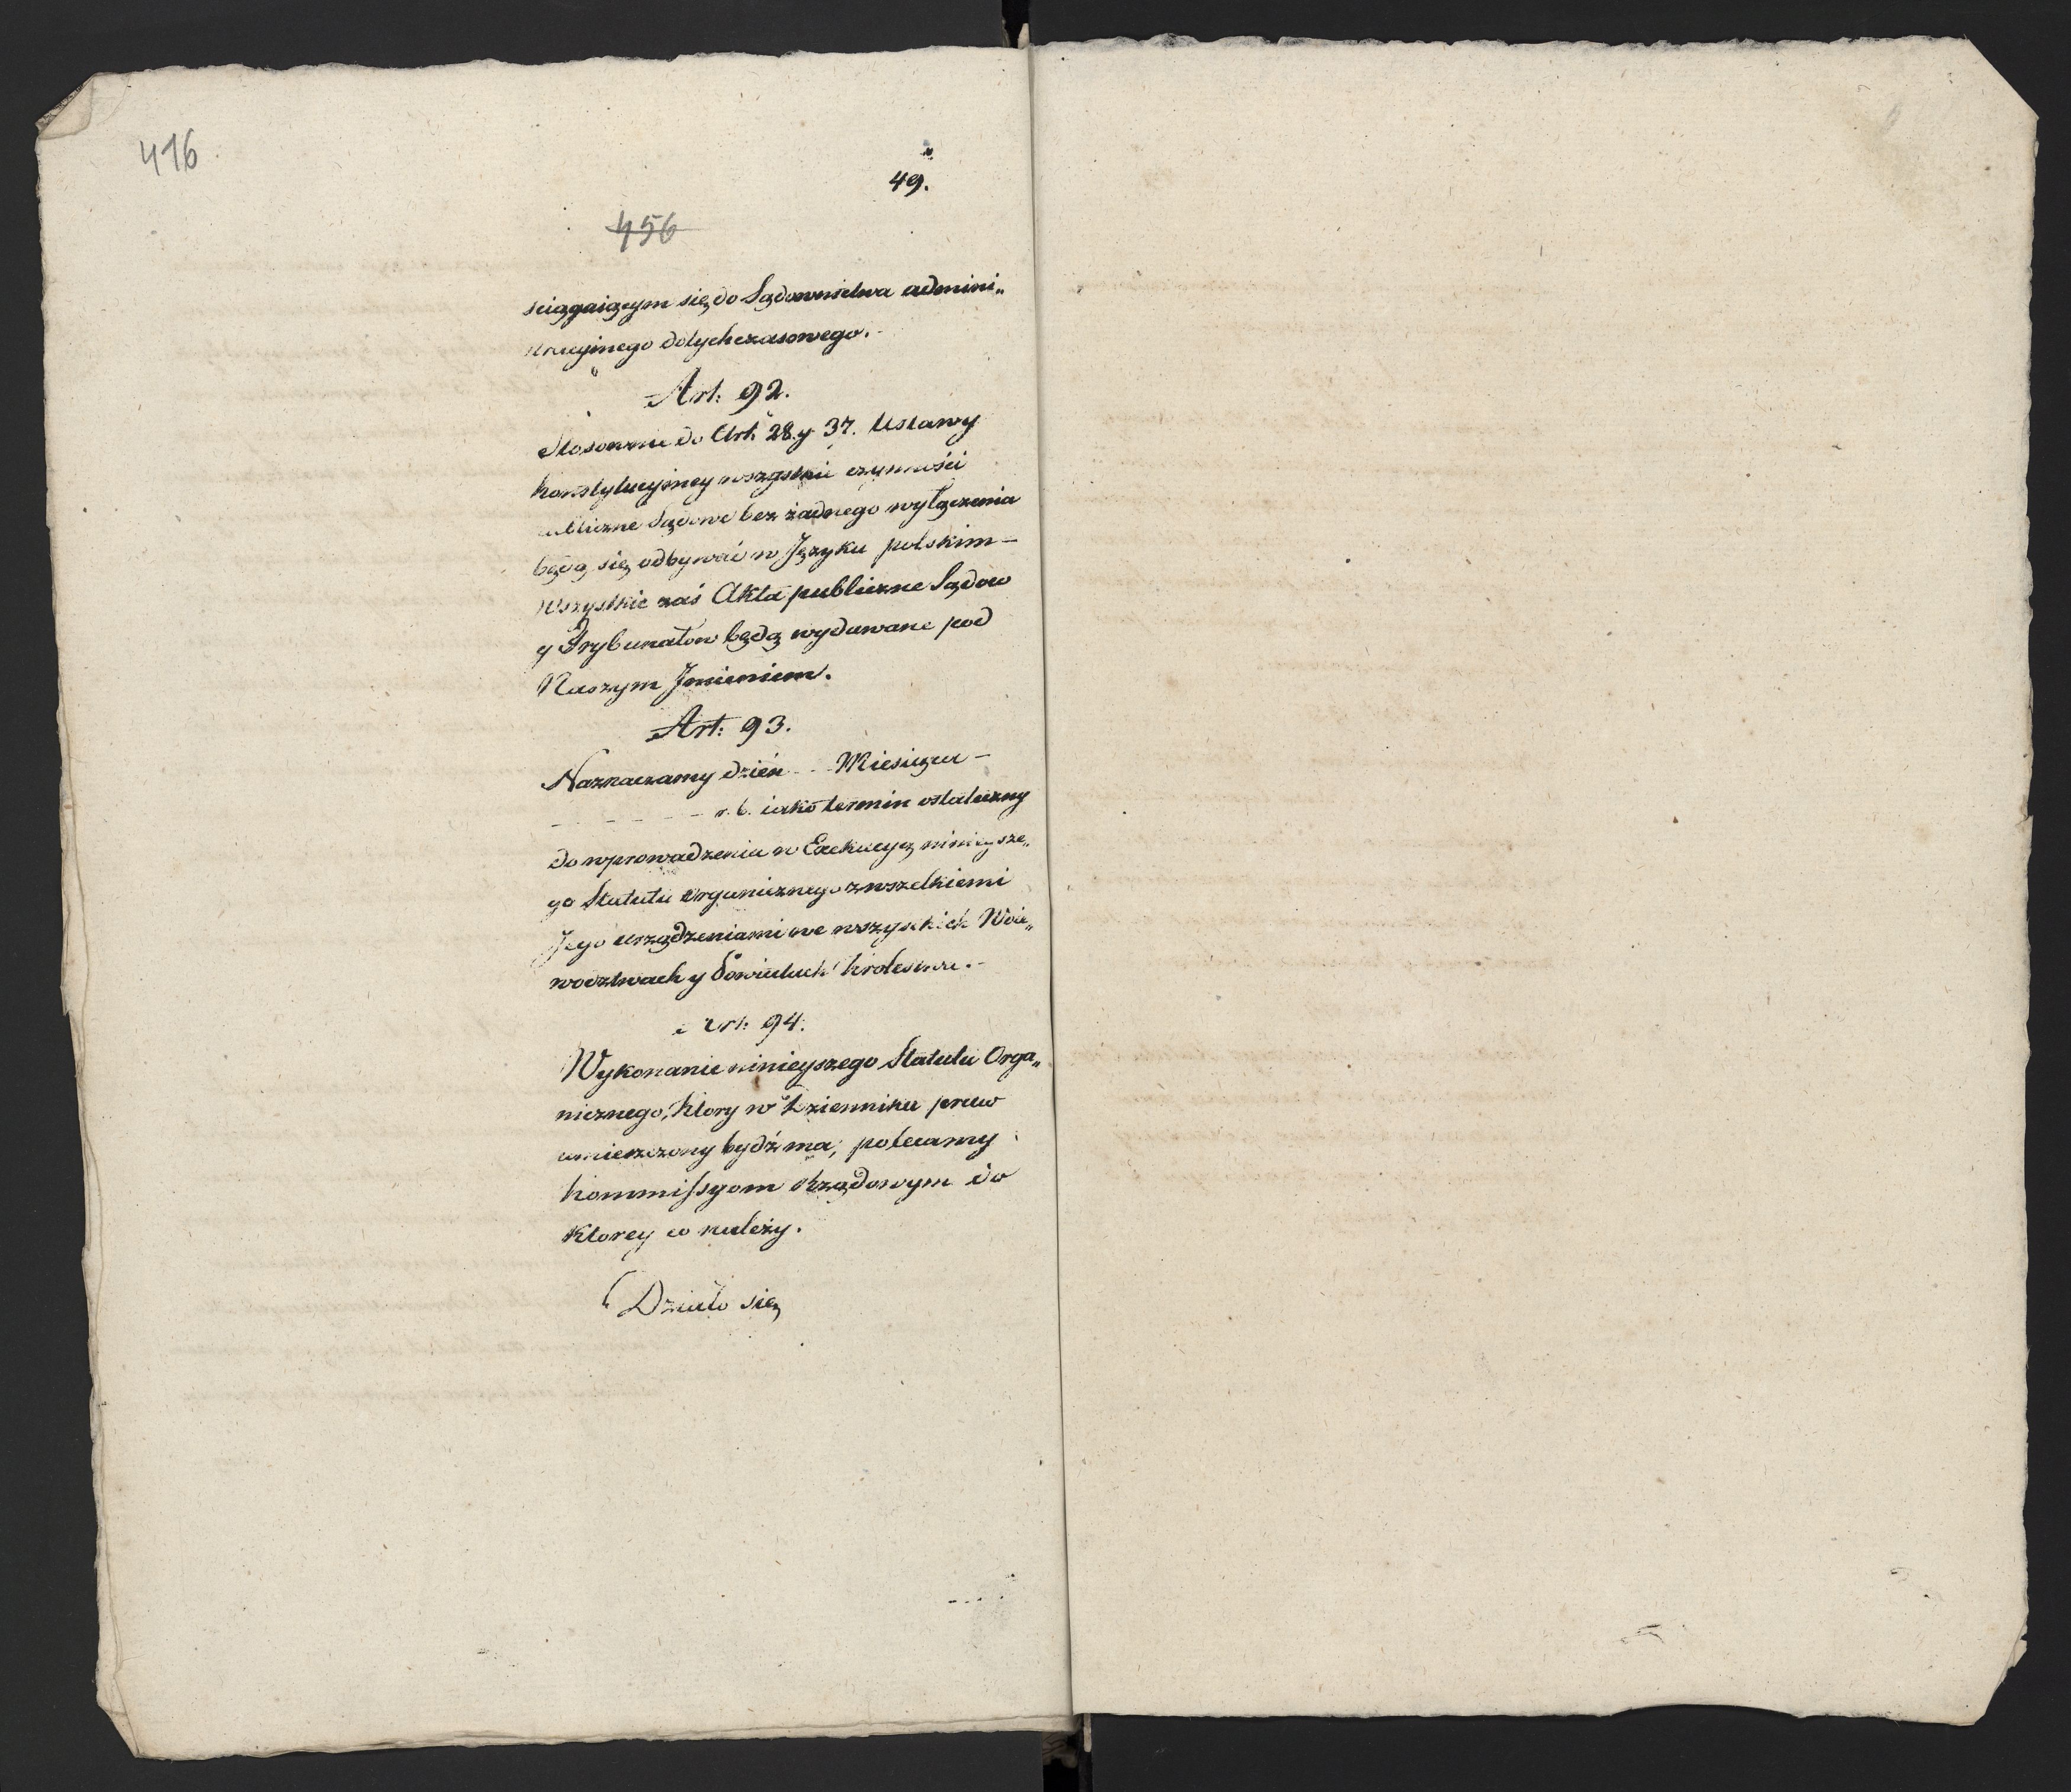 416
49.
456
sciągaiącym się do Sądownictwa admini„
stracyinego dotychczasowego.-
Art: 92.
Stosownie do Art: 28. y 37. Ustawy
konstytucyiney wszystkie czynności
publiczne Sądowe bez żadnego wyłączenia
będą się odbywać w Języku polskim -
wszystkie zaś Akta publiczne Sądow
y Trybunałow będą wydawane pod
Naszym Jmieniem.
Art: 93.
Naznaczamy dzień - - Miesiąca -
- - - - - r. b. iako termin ostateczny
do wprowadzenia w Exekucyą ninieysze„
go Statutu Organicznego z wszelkiemi
Jego urządzeniami we wszystkich Woie„
wodztwach y Powiatach Krolestwa.-
Art: 94.
Wykonanie ninieyszego Statutu Orga„
nicznego, ktory w Dzienniku praw
umieszczony bydź ma, polecamy
Kommissyom Rządowym do
ktorey co należy.
Działo się